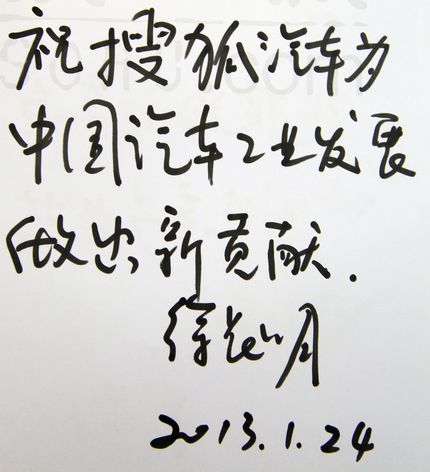 祝搜狐汽车为
中国汽车工业发展
做出新贡献.
徐长明
2013.1.24